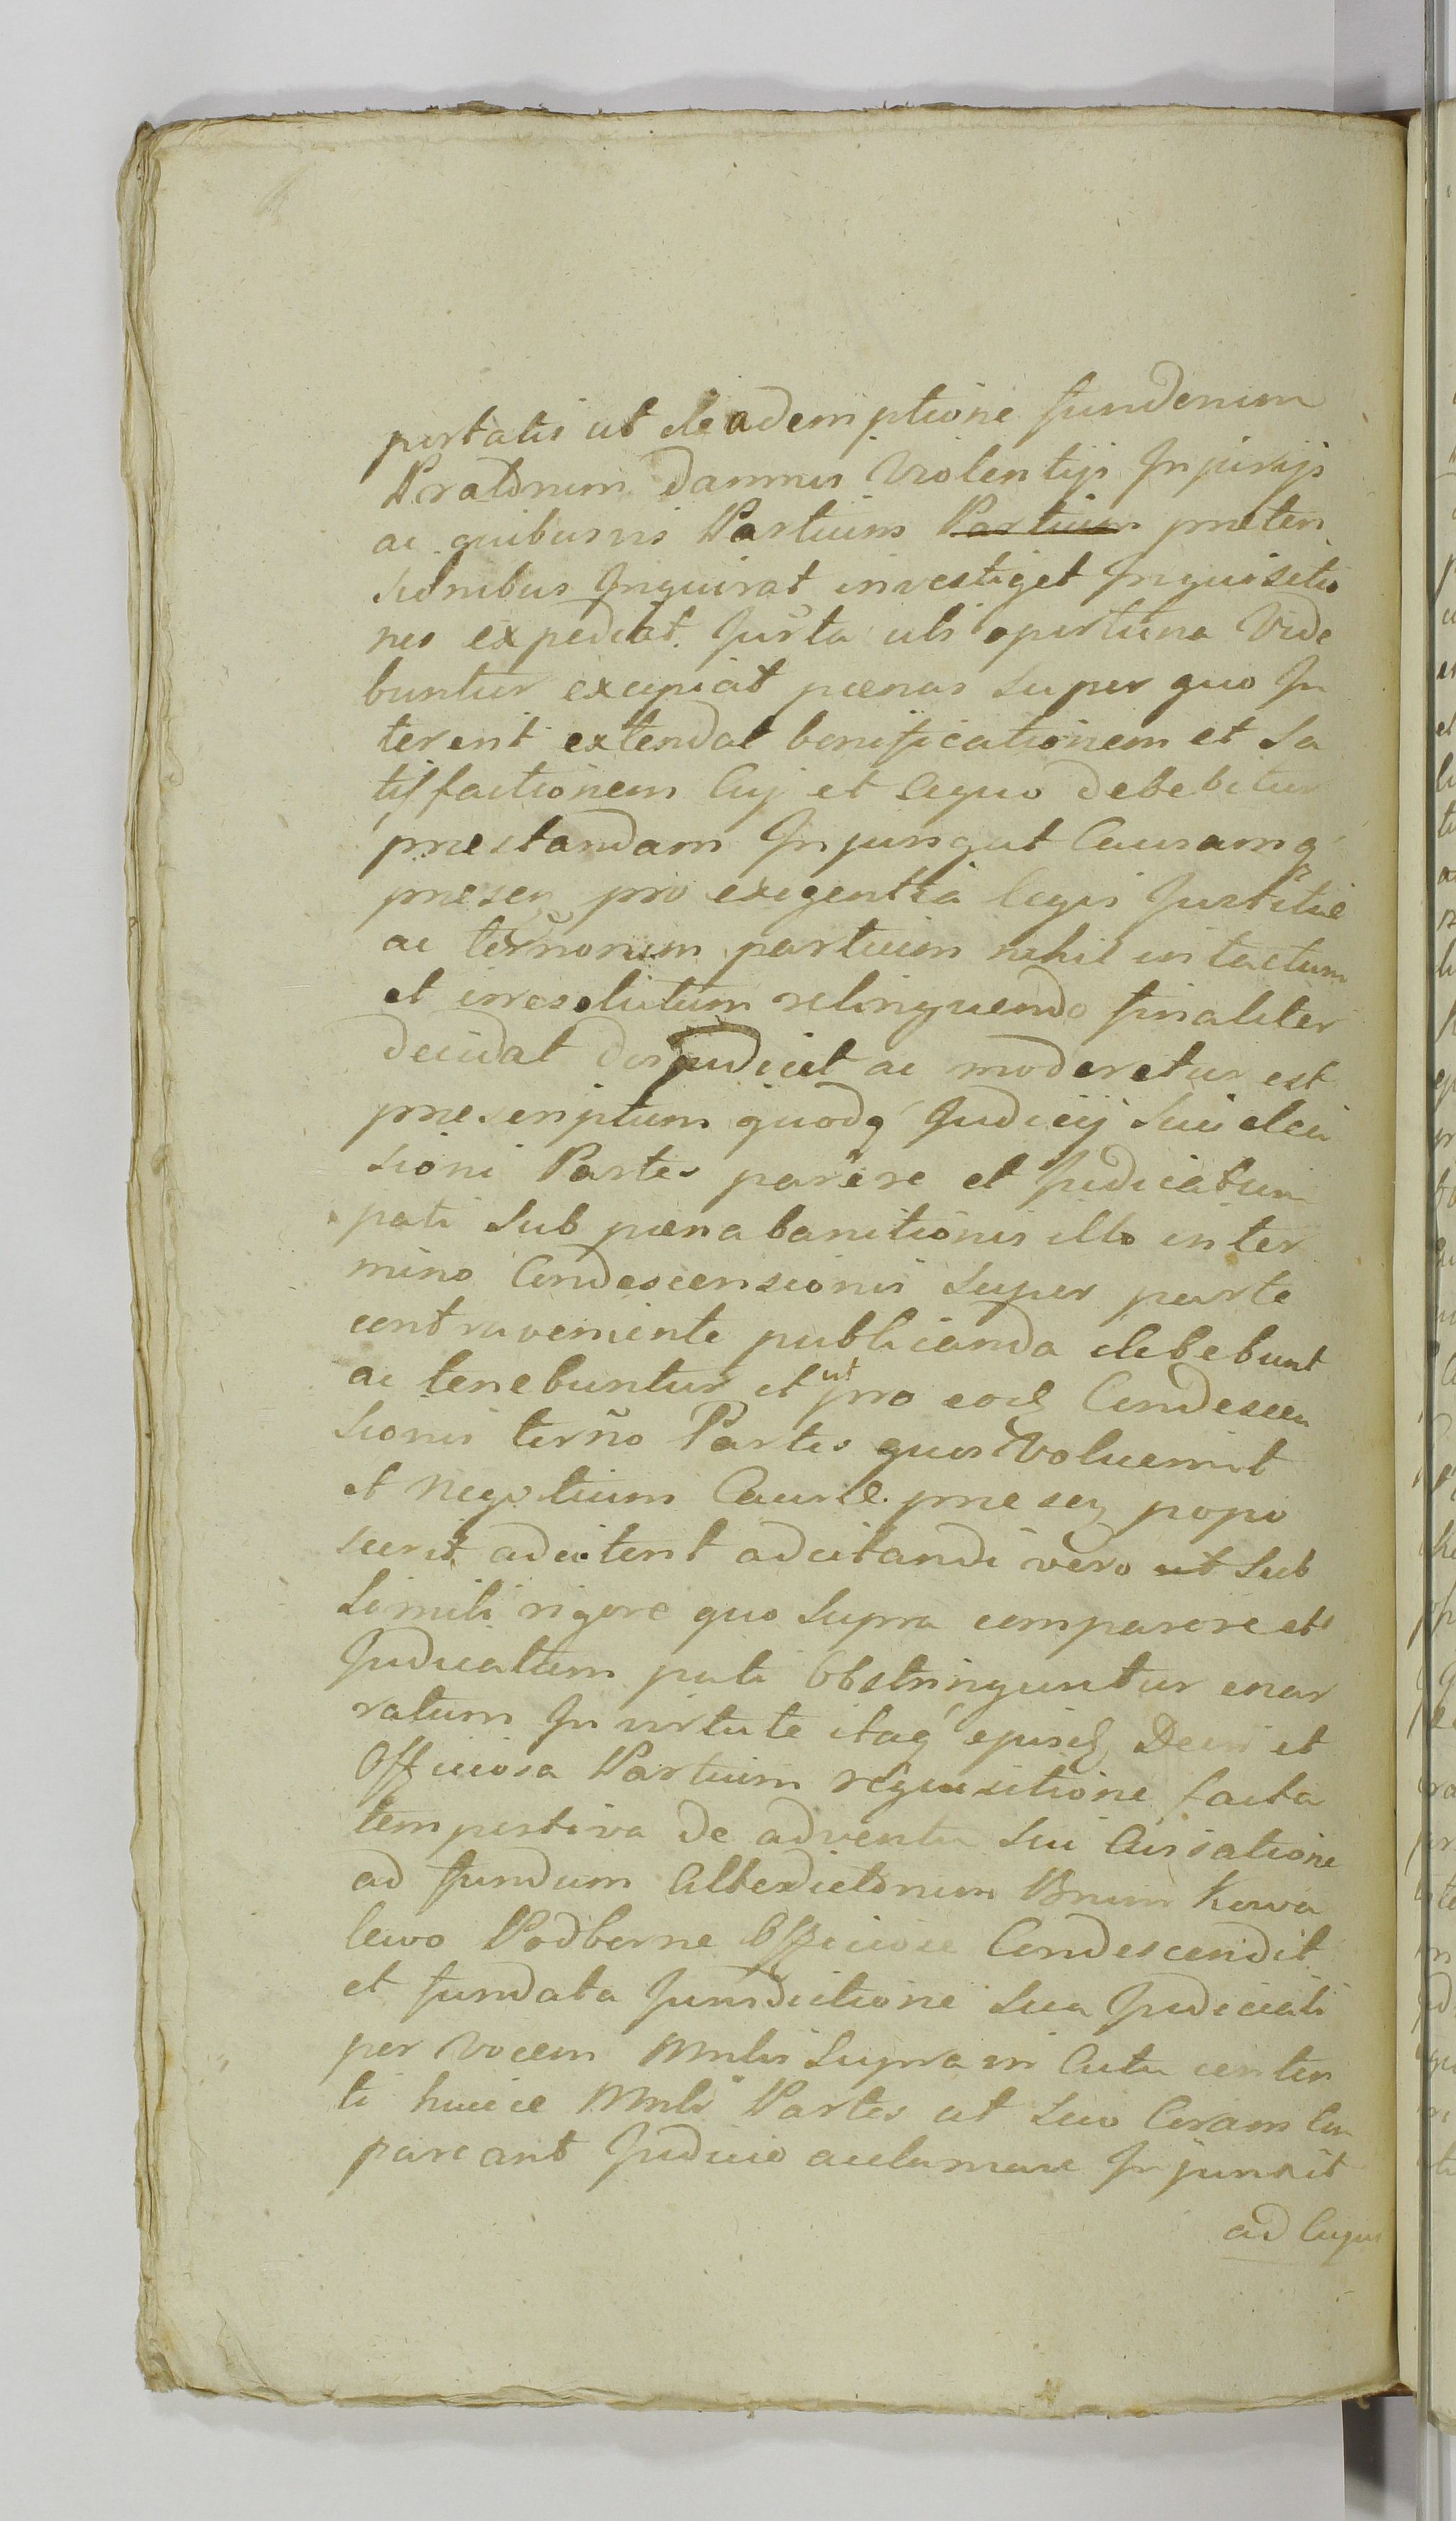 portatis ut de ademptione fundorum
Pratorum damnis violentijs Injurijs
ac quibusvis Partium Partium preten
sionibus Inquirat investiget Inquisitio
nes expediat. Jurta ubi oportuna Vide
buntur excipiat pænas super quo In
tererit extendat bonificationem et Sa
tisfactionem Cuj et aquo debebitur
præstandam Injungat Causamq
præsen pro exigentia legis Justitiæ
ac terñorum partium nihil intactum
et irresolutum relinquendo finaliter
decidat dijudicet ac moderetur est
præscriptum quodq Judicij sui deci
sioni Partes parere et Judicatum
pati Sub pæna banitionis illo in ter
mino Condescensionis super parte
contraveniente publicanda debebunt
ac tenebuntur et ut pro eod Condescen
sionis terño Partes quos Voluerint
et negotium Causæ præsen popo
scerit adcitent adcitandi vero ut Sub
Simili rigore quo Supra comparere et
Judicatum pati Obstringuntur enar
ratum In virtute itaq ejusd Decr et
Officiosa Partium requisitione facta
tempestiva de adventu Sui Avisatione
ad fundum Attendictorum Bnrum Kowa
lewo Podborne Officiose Condescendit
et fundata Jurisdictione Sua Judiciali
per vocem Mnlis Supra in Actu conten
ti huice Mnli Partes ut Suo Coram Com
pareant Judicio acclamare Injunxit
ad Cujus